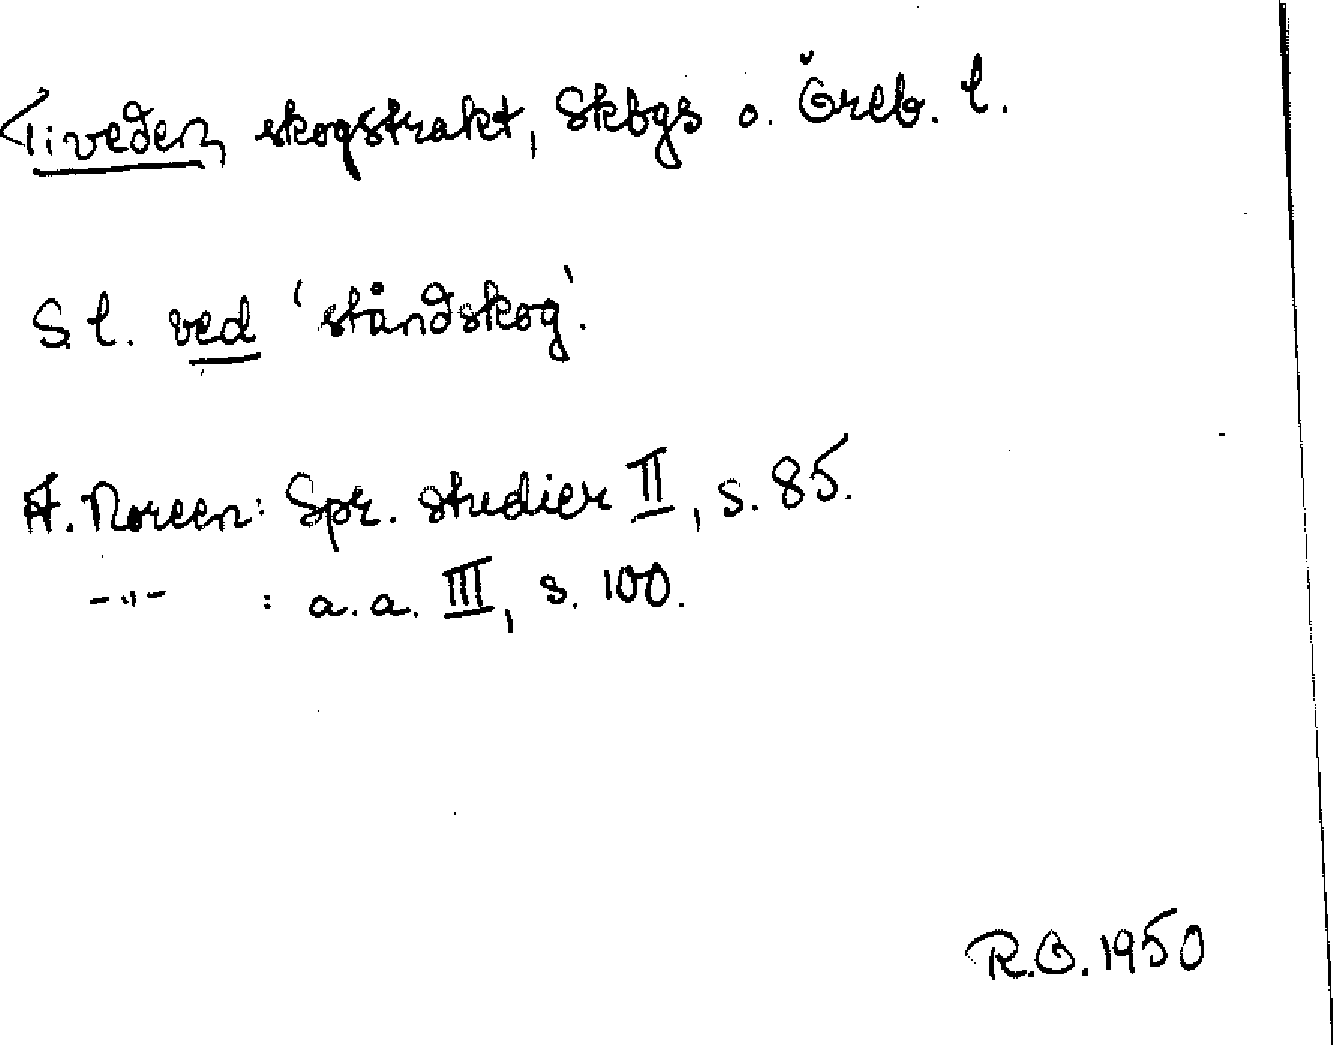 Tiveden, skogstrakt, Skbgs o. Öreb. l.
S. l. ved 'ståndskog'.
A. Noreen: Spr. studier II, s. 85.
-"- : a.a. III, s. 100.
R.O. 1950